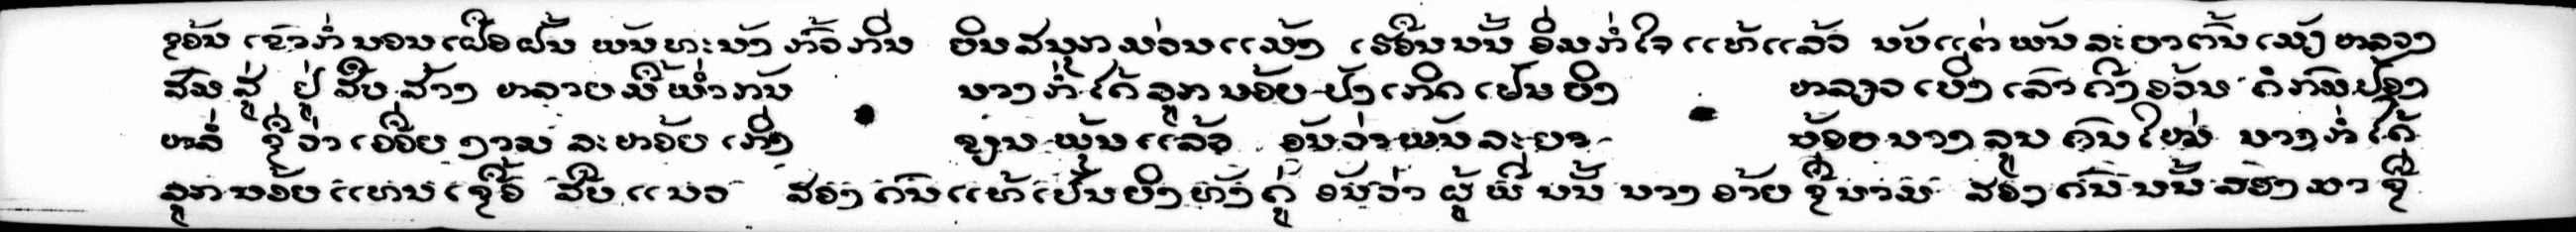 ຊອ້ນ ເຂົາກໍ່ນອນເຝືອຝັ້ນ ພັນທະນັງ ກົ້ວກິ່ນ ຍິນສນຸກມ່ວນແມ້ງ ເຮືອນນັ້ນ ອິ່ມກໍ່ໃຈ ແທ້ແລ້ວ ນັບແຕ່ພັນລະຍາຕົ້ນເມັງຫລວງ
ສົມສູ່ ຢູ່ສືບສ້າງ ຫລາຍມື້ຍ່ຳກັນ ນາງກໍ່ໄດ້ລູກນອ້ຍບັງເກີດເປັນຍິງ ຫລຽວເບິ່ງເລົາຄີງອວ້ນ ດຳກົມປ້ອງ
ຫລໍ່ ຊື່ວ່າເອື້ອຍງາມ ລະຫອ້ຍເກິ່ງ ຂຽນພຸ້ນແລ້ວ ອັນວ່າພັນລະຍາ ນ້ອຍນາງລຸນຄົນໃຫມ່ ນາງກໍ່ໄດ້
ລູກນອ້ຍແຫນເຊື້ອ ສືບແນວ ສອງຄົນແທ້ເປັນຍິງທັງຄູ່ ອັນວ່າຜູ້ພີ່ນັ້ນ ນາງອ້າຍຊື່ນາມ ສອງຄົນນັ້ນສອງມາຊື່